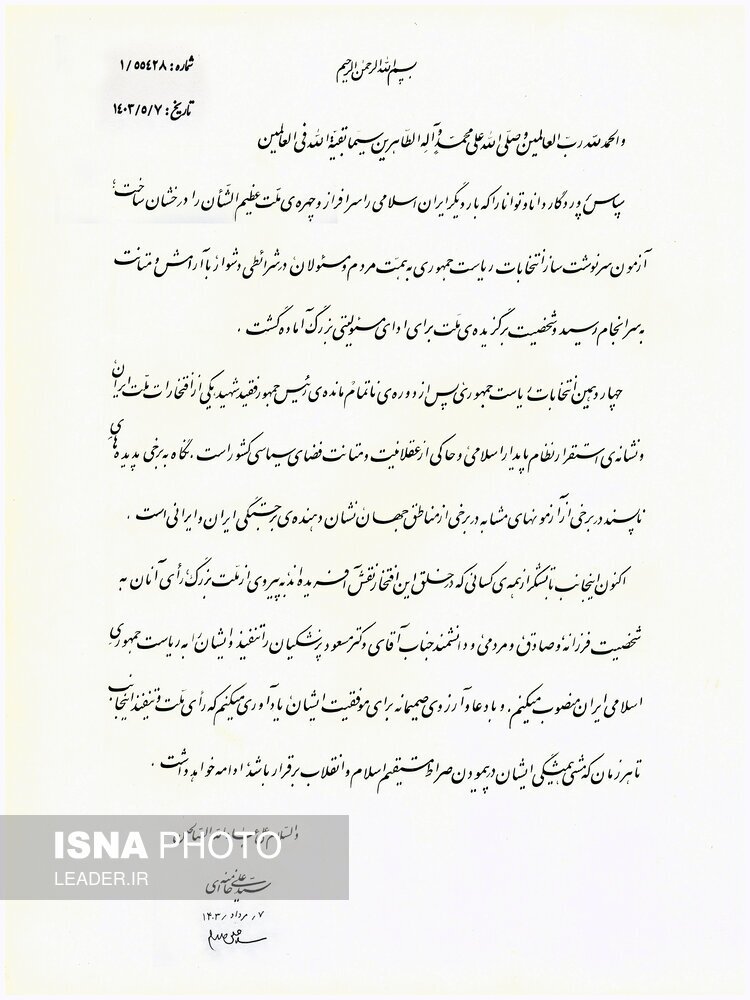 بسم الله الرحمن الرحیم
شماره: ۱/۵۵۴۲۸
تاریخ: ۱۴۰۳/۵/۷
والحمدلله رب العالمین و صلّی الله علی محمّد و آله الطّاهرین سیّما بقیّة الله فی العالمین
سپاس پروردگار دانا و توانا را که بار دیگر ایران اسلامی را سرافراز و چهره‌ی ملّت عظیم‌الشّأن را درخشان ساخت؛
آزمون سرنوشت‌ساز انتخابات ریاست جمهوری به همّت مردم و مسئولان در شرائطی دشوار با آرامش و متانت
به سرانجام رسید و شخصیت برگزیده‌ی ملّت برای ادای مسئولیتی بزرگ آماده گشت.
چهاردهمین انتخابات ریاست جمهوری پس از دوره‌ی ناتمام مانده‌ی رئیس جمهور فقید شهید یکی از افتخارات ملّت ایران
و نشانه‌ی استقرار نظام پایدار اسلامی و حاکی از عقلانیت و متانت فضای سیاسی کشور است. نگاه به برخی پدیده‌های
ناپسند در برخی از آزمونهای مشابه در برخی از مناطق جهان نشان دهنده‌ی برجستگی ایران و ایرانی است.
اکنون اینجانب با تشکّر از همه‌ی کسانی که در خلق این افتخار نقش آفریده‌اند به پیروی از ملّت بزرگ رأی آنان به
شخصیت فرزانه و صادق و مردمی و دانشمند جناب آقای دکتر مسعود پزشکیان را تنفیذ و ایشان را به ریاست جمهوری
اسلامی ایران منصوب میکنم. و با دعا و آرزوی صمیمانه برای موفقیت ایشان یادآوری میکنم که رأی ملّت و تنفیذ اینجانب
تا هر زمان که مشی همیشگی ایشان در پیمودن صراط مستقیم اسلام و انقلاب برقرار باشد ادامه خواهد داشت.
والسّلام علی عبادالله الصّالحین
ISNA PHOTO
LEADER.IR
سیّدعلی خامنه‌ای
۷ / مرداد / ۱۴۰۳